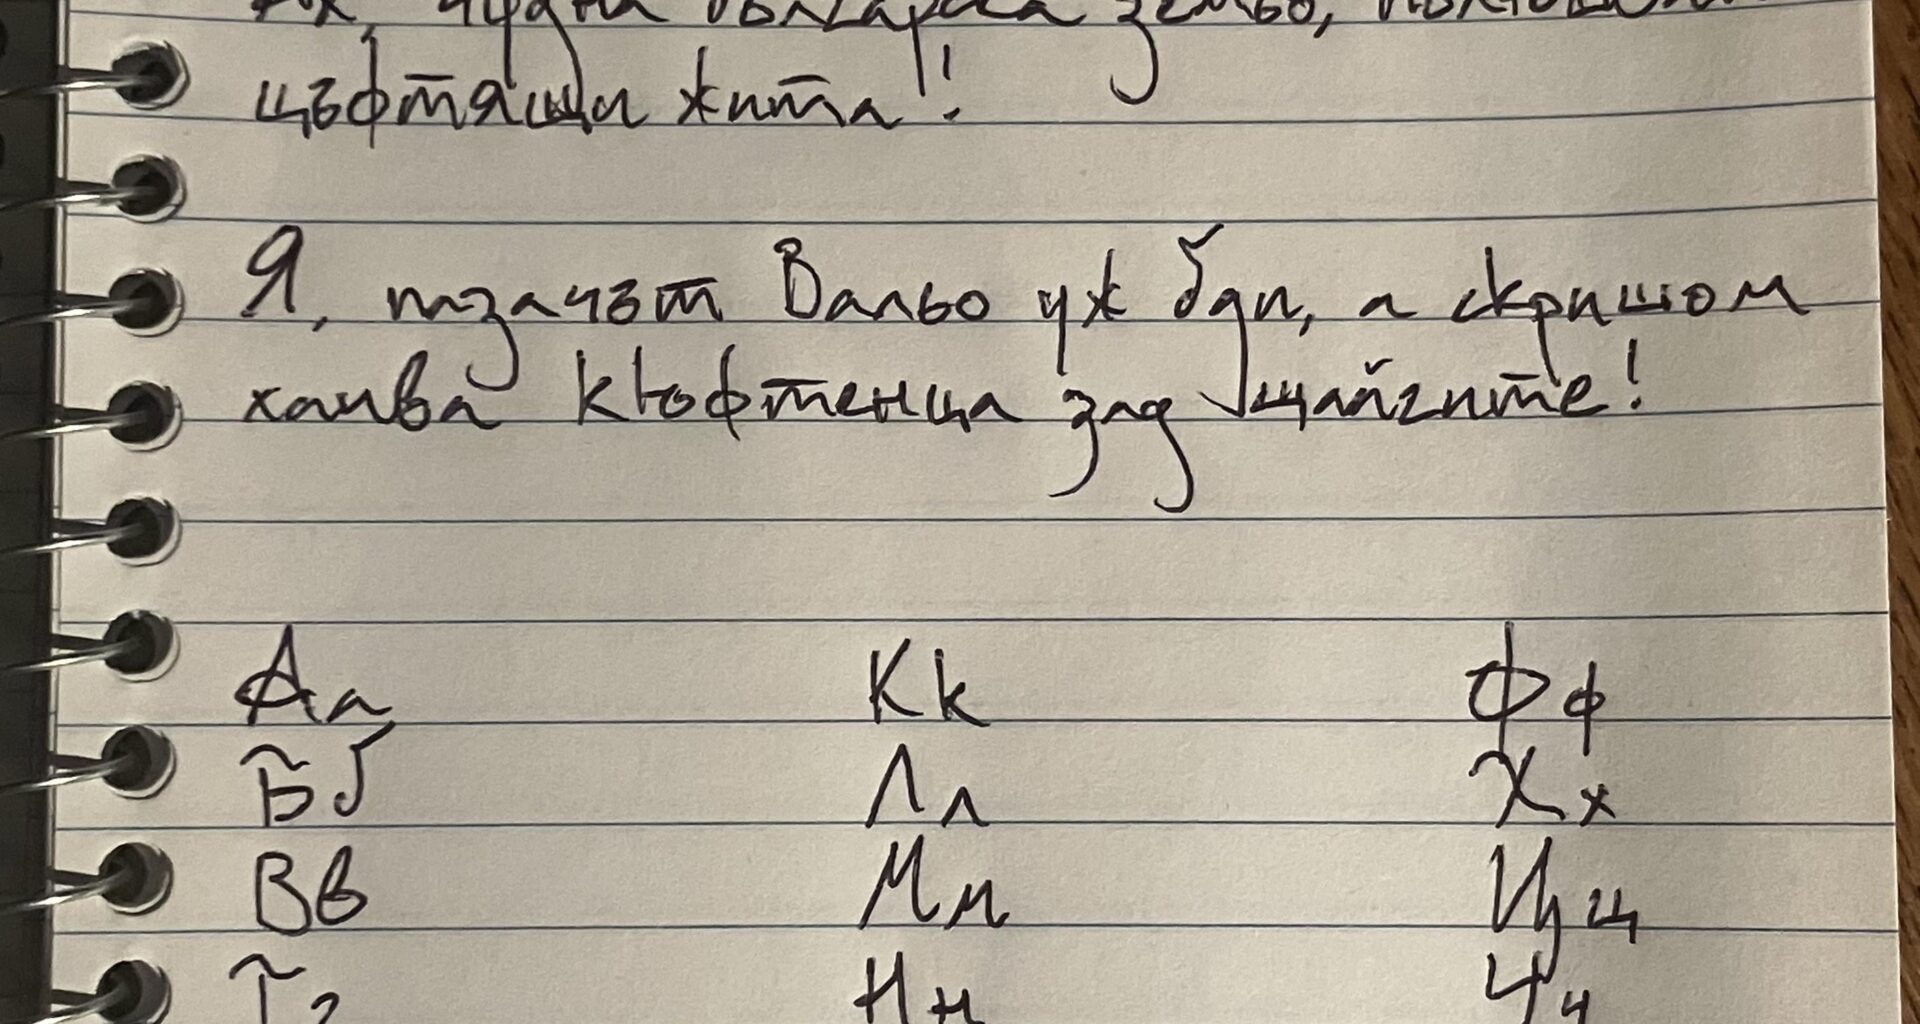 Ах, чудна българска земьо,
цъфтящи жита!
Я, пазачът Вальо уж бди, а скришом
хапва кюфтенца зад щайгите!
Аа Кк Фф
Бб Лл Хх
Вв Мм Цц
Гг Нн Чч